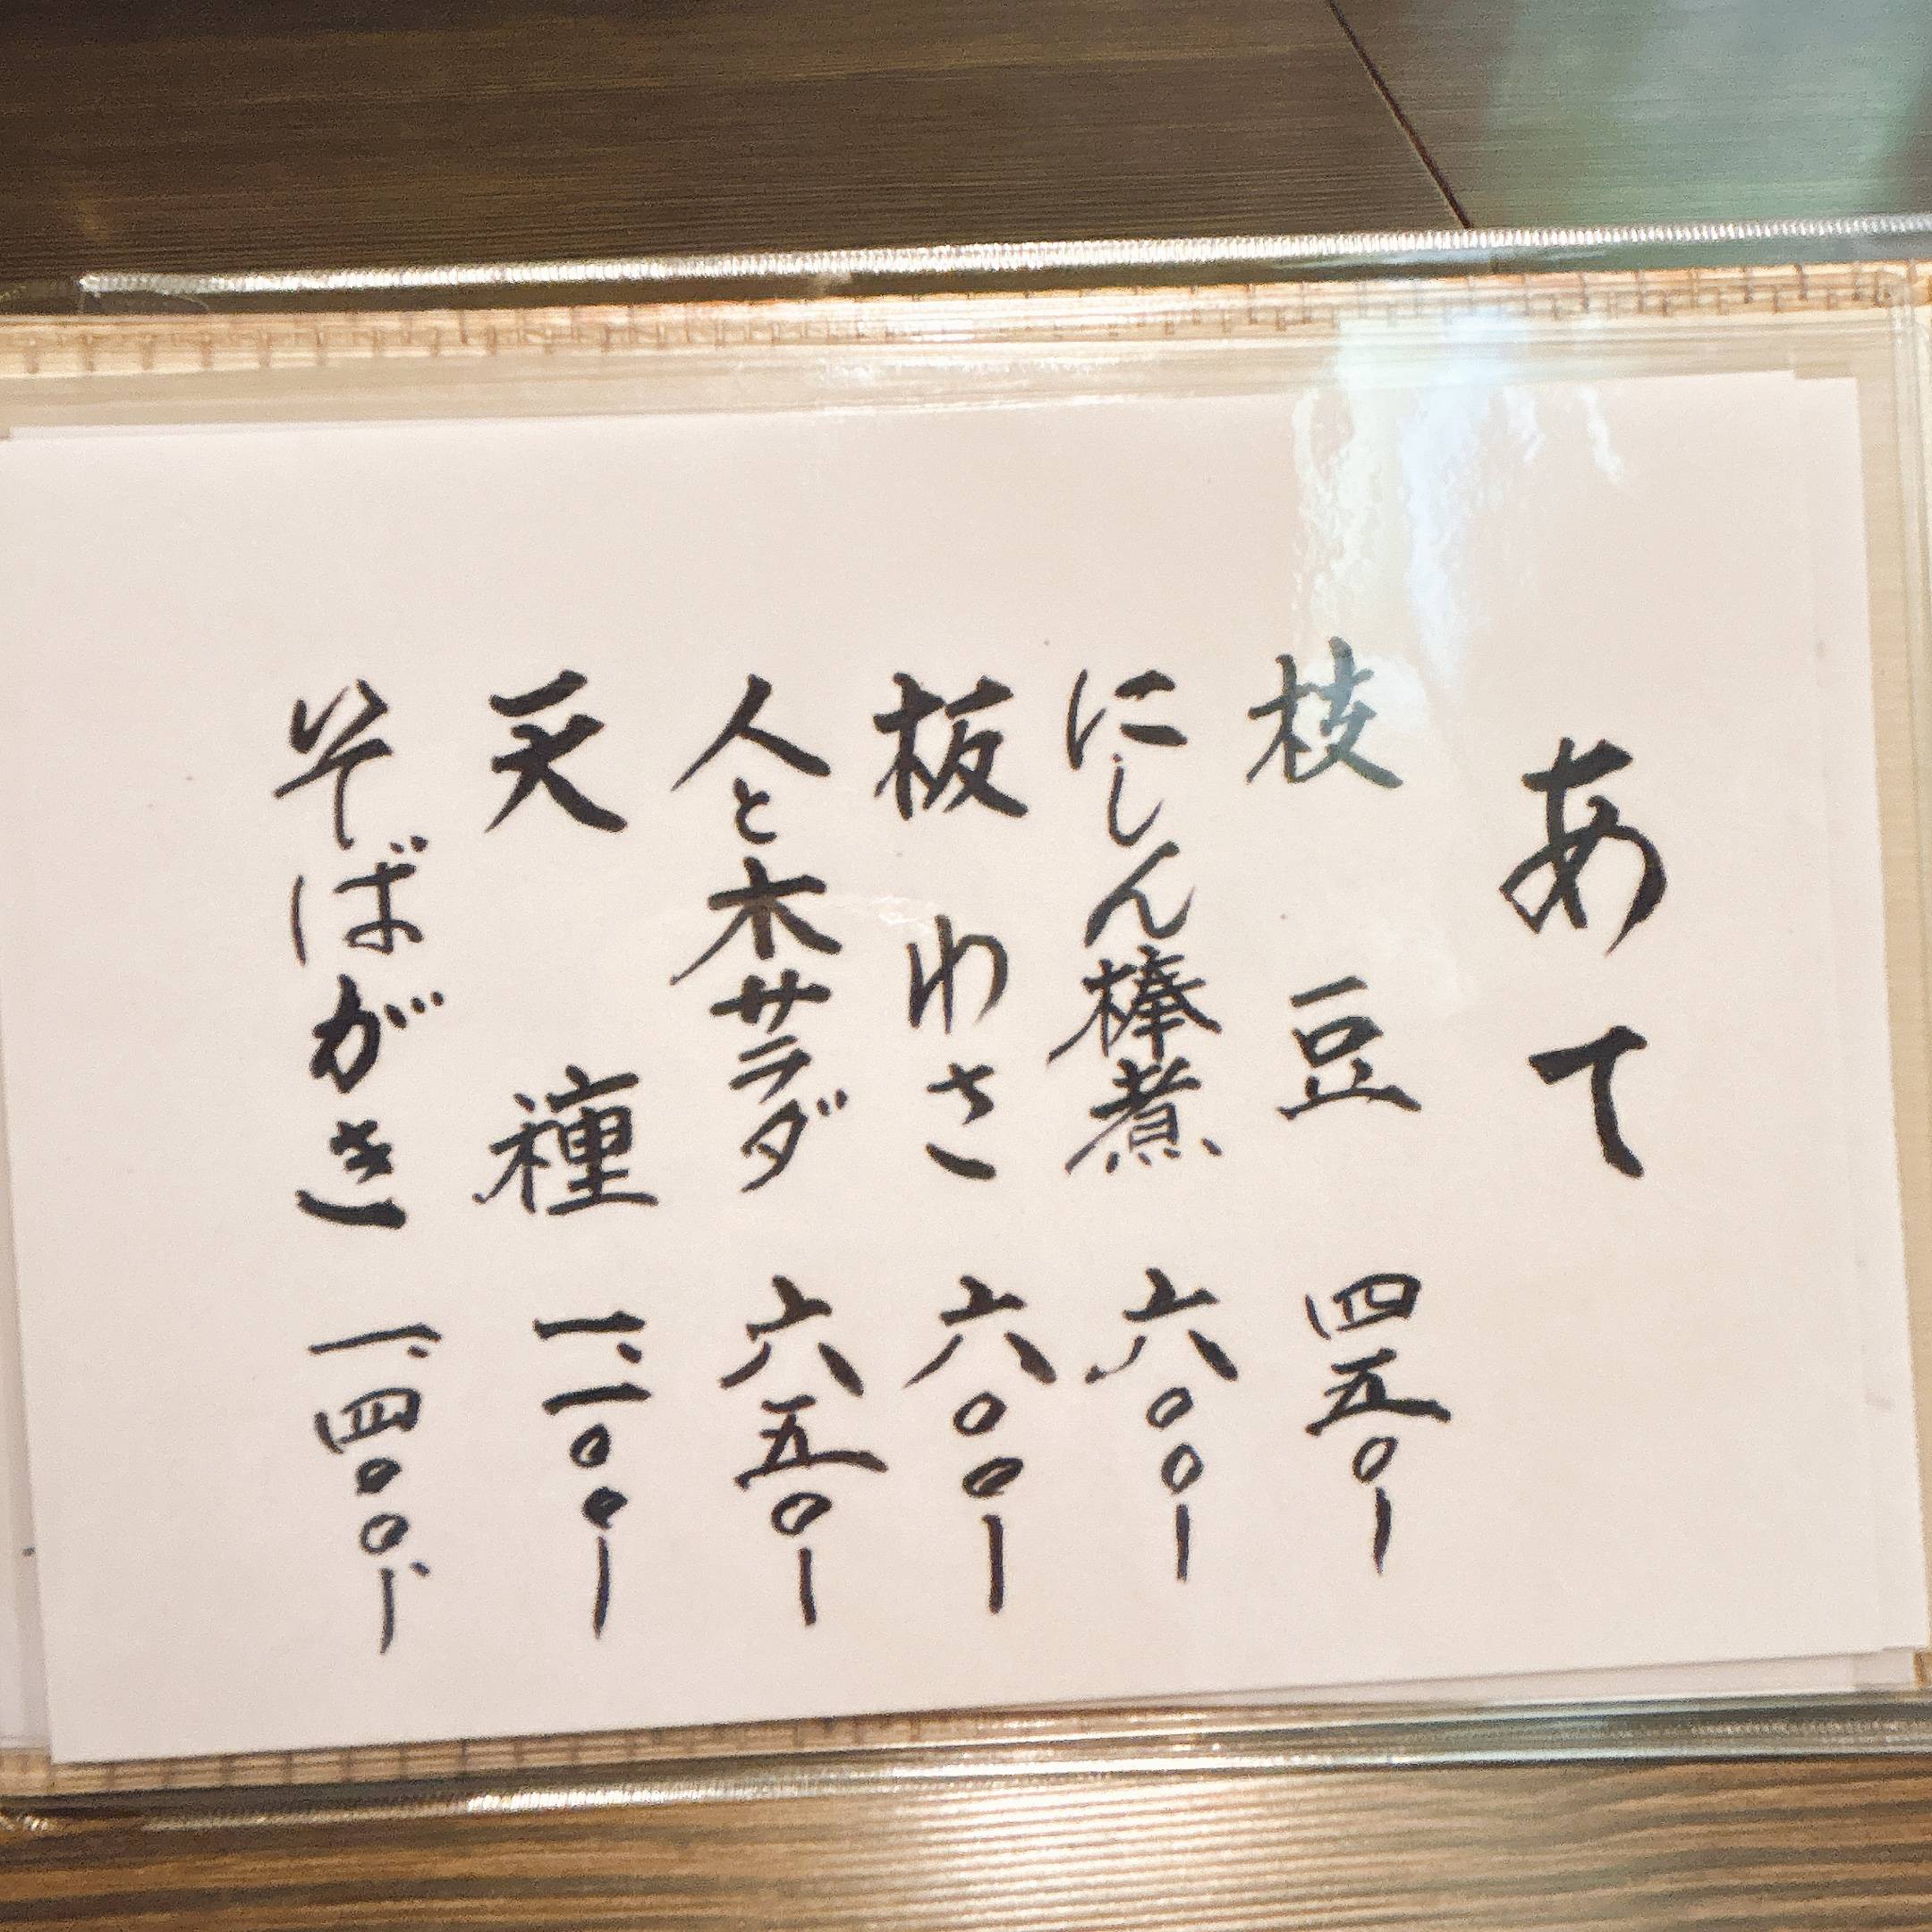 あて
枝豆 四五〇ー
にしん棒煮 六〇〇ー
板わさ 六〇〇ー
人と木サラダ 六五〇ー
天種 一、一〇〇ー
そばがき 一、四〇〇ー